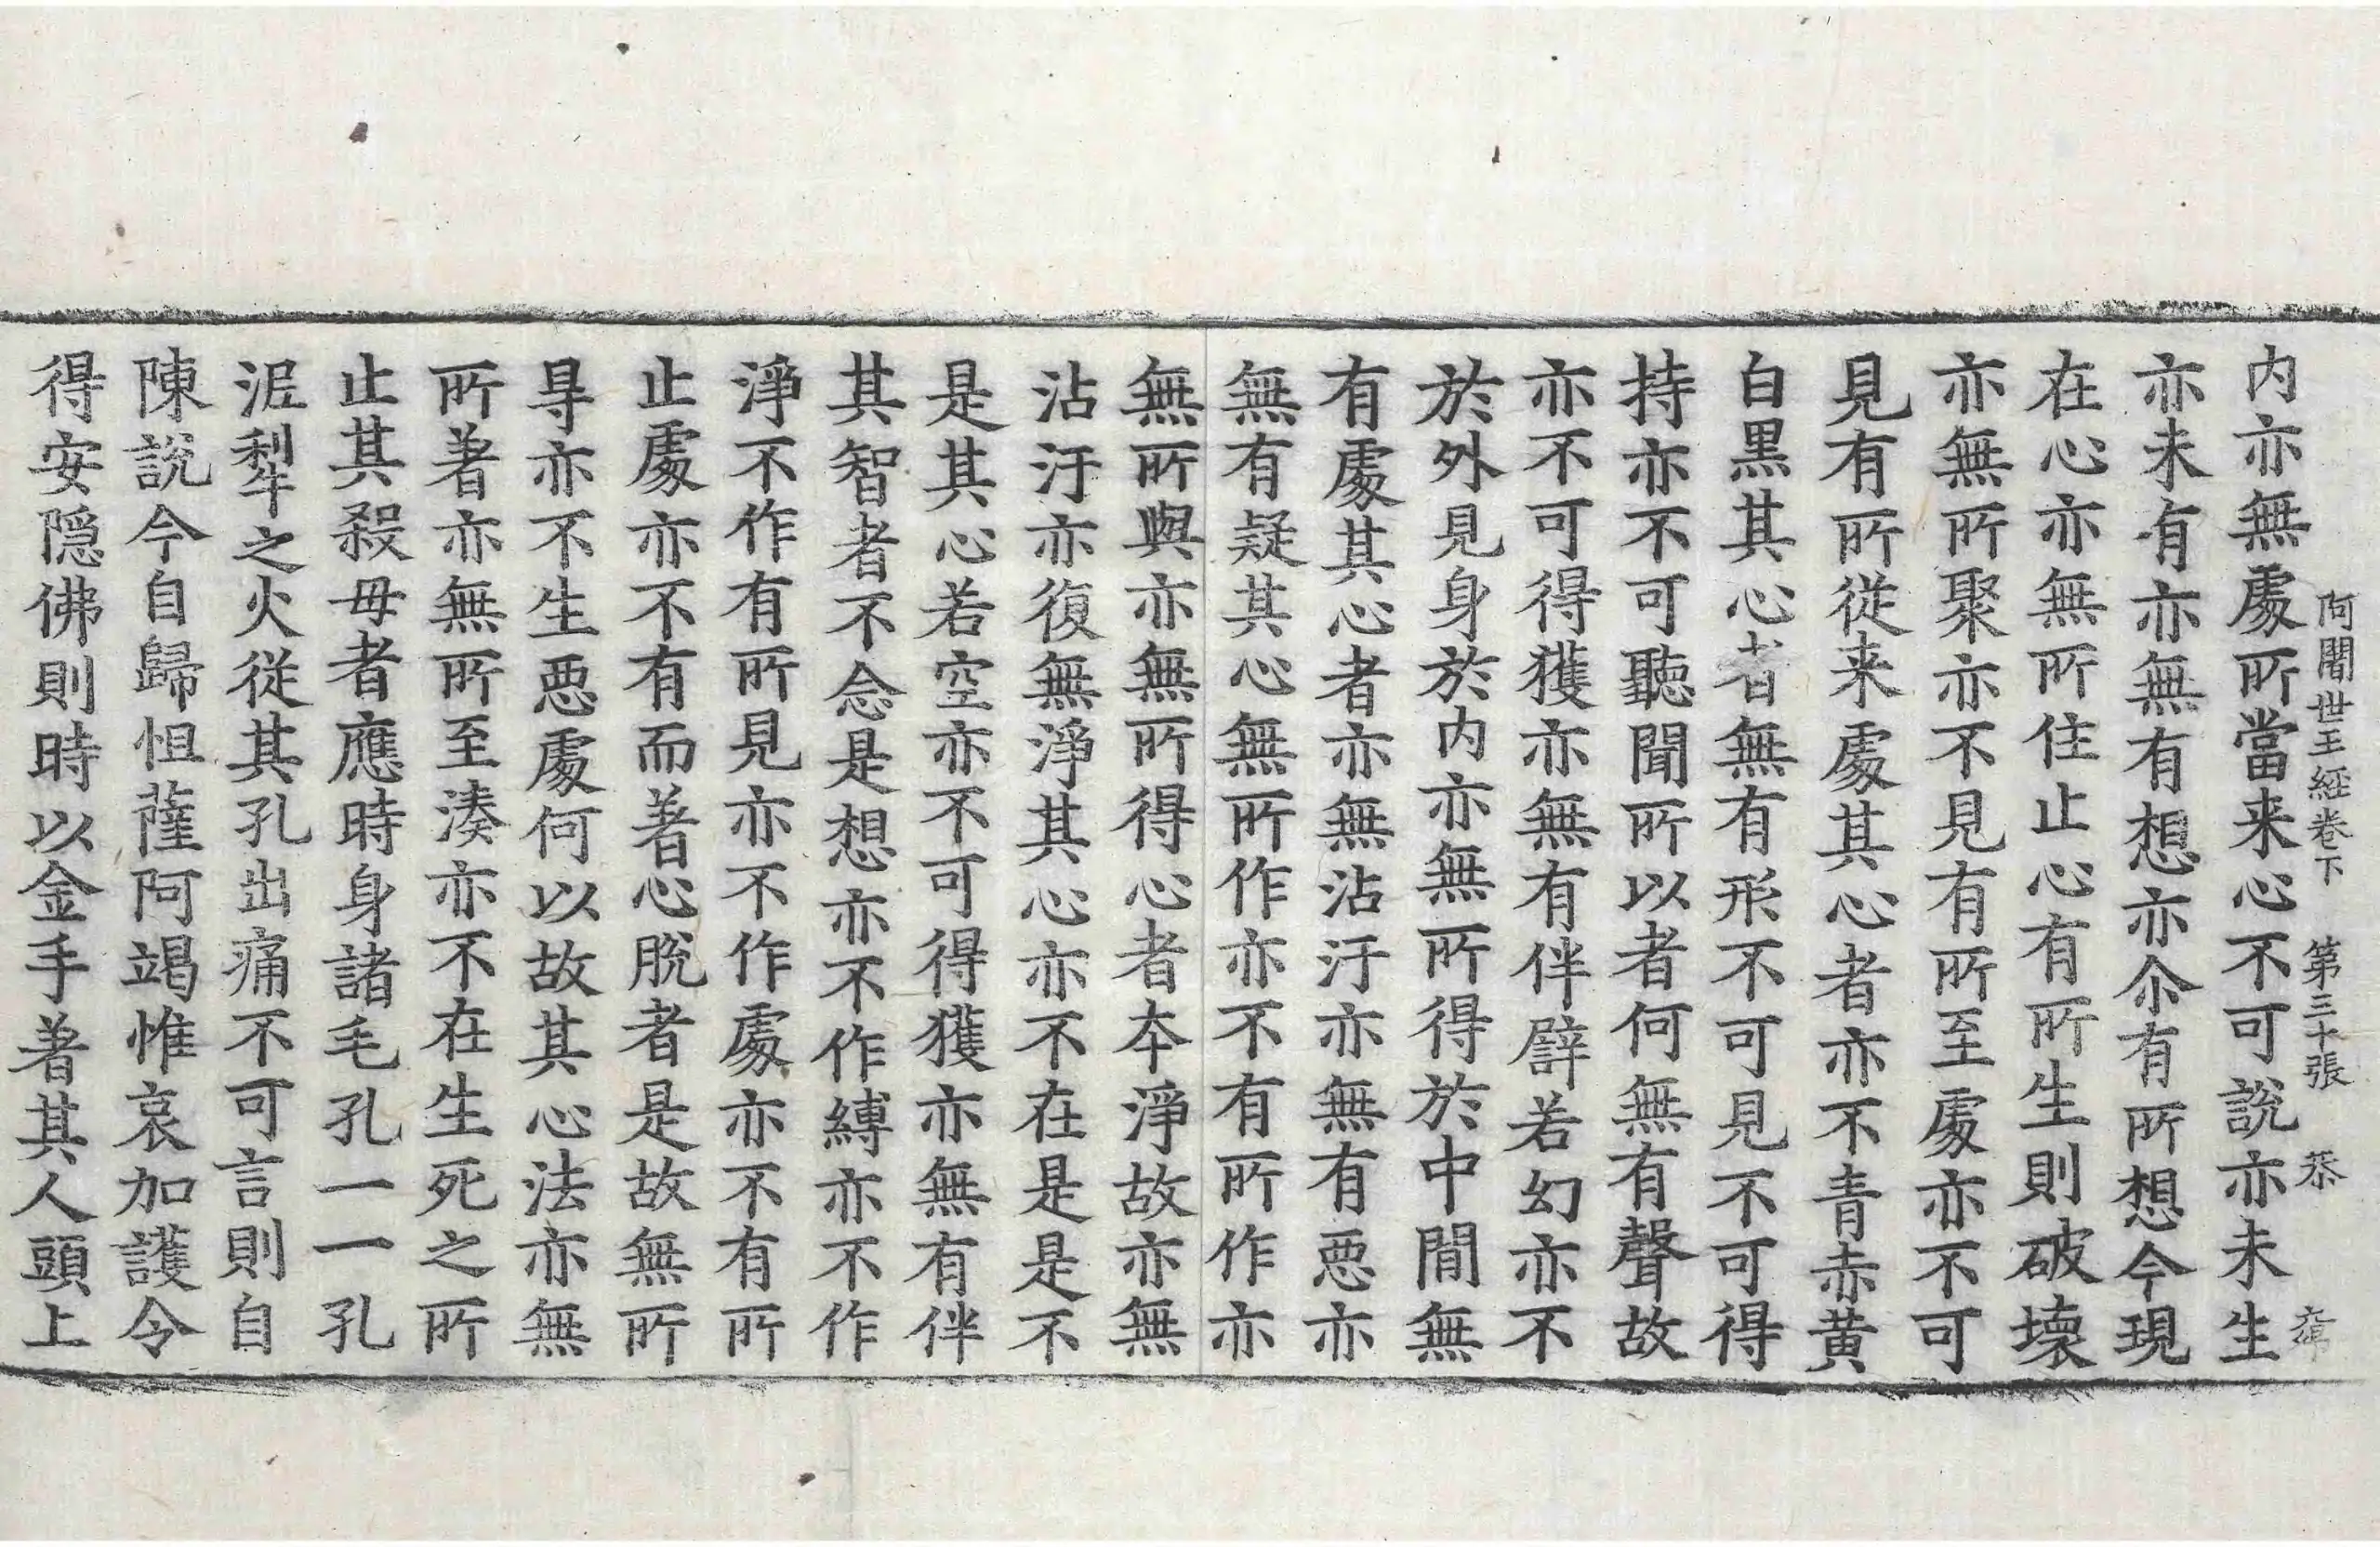 阿闍世王經卷下　第三十張　恭
内亦無處所當来心不可說亦未生
亦未有亦無有想亦尒有所想今現
在心亦無所住止心有所生則破壞
亦無所聚亦不見有所至處亦不可
見有所從来處其心者亦不青赤黄
白黒其心者無有形不可見不可得
持亦不可聽聞所以者何無有聲故
亦不可得獲亦無有伴辟若幻亦不
於外見身於内亦無所得於中間無
有處其心者亦無沾汙亦無有惡亦
無有疑其心無所作亦不有所作亦
無所與亦無所得心者夲淨故亦無
沾汙亦復無淨其心亦不在是是不
是其心若空亦不可得獲亦無有伴
其智者不念是想亦不作縛亦不作
淨不作有所見亦不作處亦不有所
止處亦不有而著心脫者是故無所
㝵亦不生惡處何以故其心法亦無
所著亦無所至湊亦不在生死之所
止其殺母者應時身諸毛孔一一孔
泥犁之火從其孔出痛不可言則自
陳說今自歸怛薩阿竭惟哀加護令
得安隱佛則時以金手著其人頭上